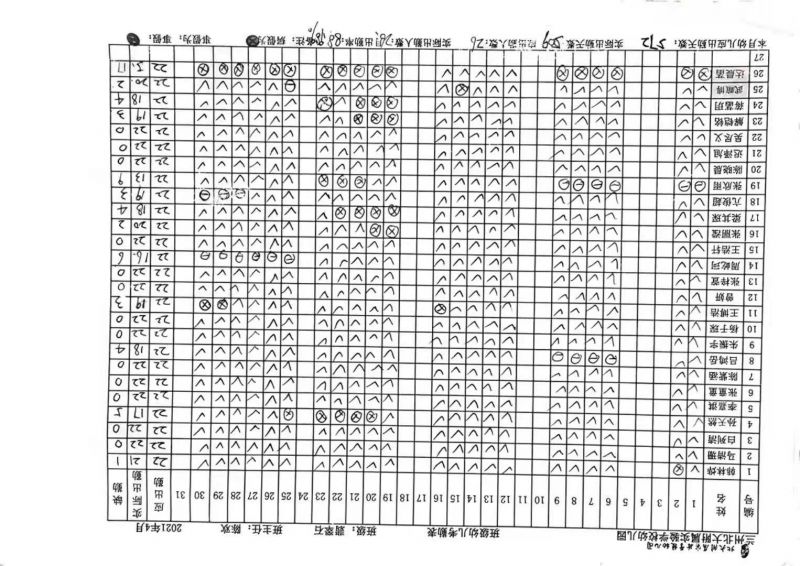 兰州北大附属实验学校幼儿园 班级幼儿考勤表 班级：翡翠石 班主任：陈欢 2021年4月
编号 姓名 1 2 3 4 5 6 7 8 9 10 11 12 13 14 15 16 17 18 19 20 21 22 23 24 25 26 27 28 29 30 31 应出勤 实际出勤 缺勤
1 韩林烨 22 21 1
2 马浩珊 22 22 0
3 白列清 22 22 0
4 孙天然 22 17 5
5 李嘉琪 22 22 0
6 张童童 22 22 0
7 陈紫涵 22 22 0
8 吕鸿岳 22 18 4
9 朱振宇 22 22 0
10 杨于琛 22 22 0
11 王博浩 22 19 3
12 曾妍 22 22 0
13 张梓萱 22 22 0
14 周屹珂 22 16 6
15 王浩轩 22 22 0
16 张丽滢 22 20 2
17 梁其琛 22 18 4
18 亢俊超 22 19 3
19 张欣雨 22 13 9
20 陈晓晨 22 22 0
21 迟泽旭 22 22 0
22 吴居义 22 22 0
23 解铠铭 22 19 3
24 蒋孟玥 22 18 4
25 22 20 2
26 达晨茜 22 5 17
27
本月幼儿应出勤天数：572 实际出勤天数：509 应出勤人数：26 实际出勤人数： 月出勤率：88.98% 备注：病假为： 事假为： 事假：